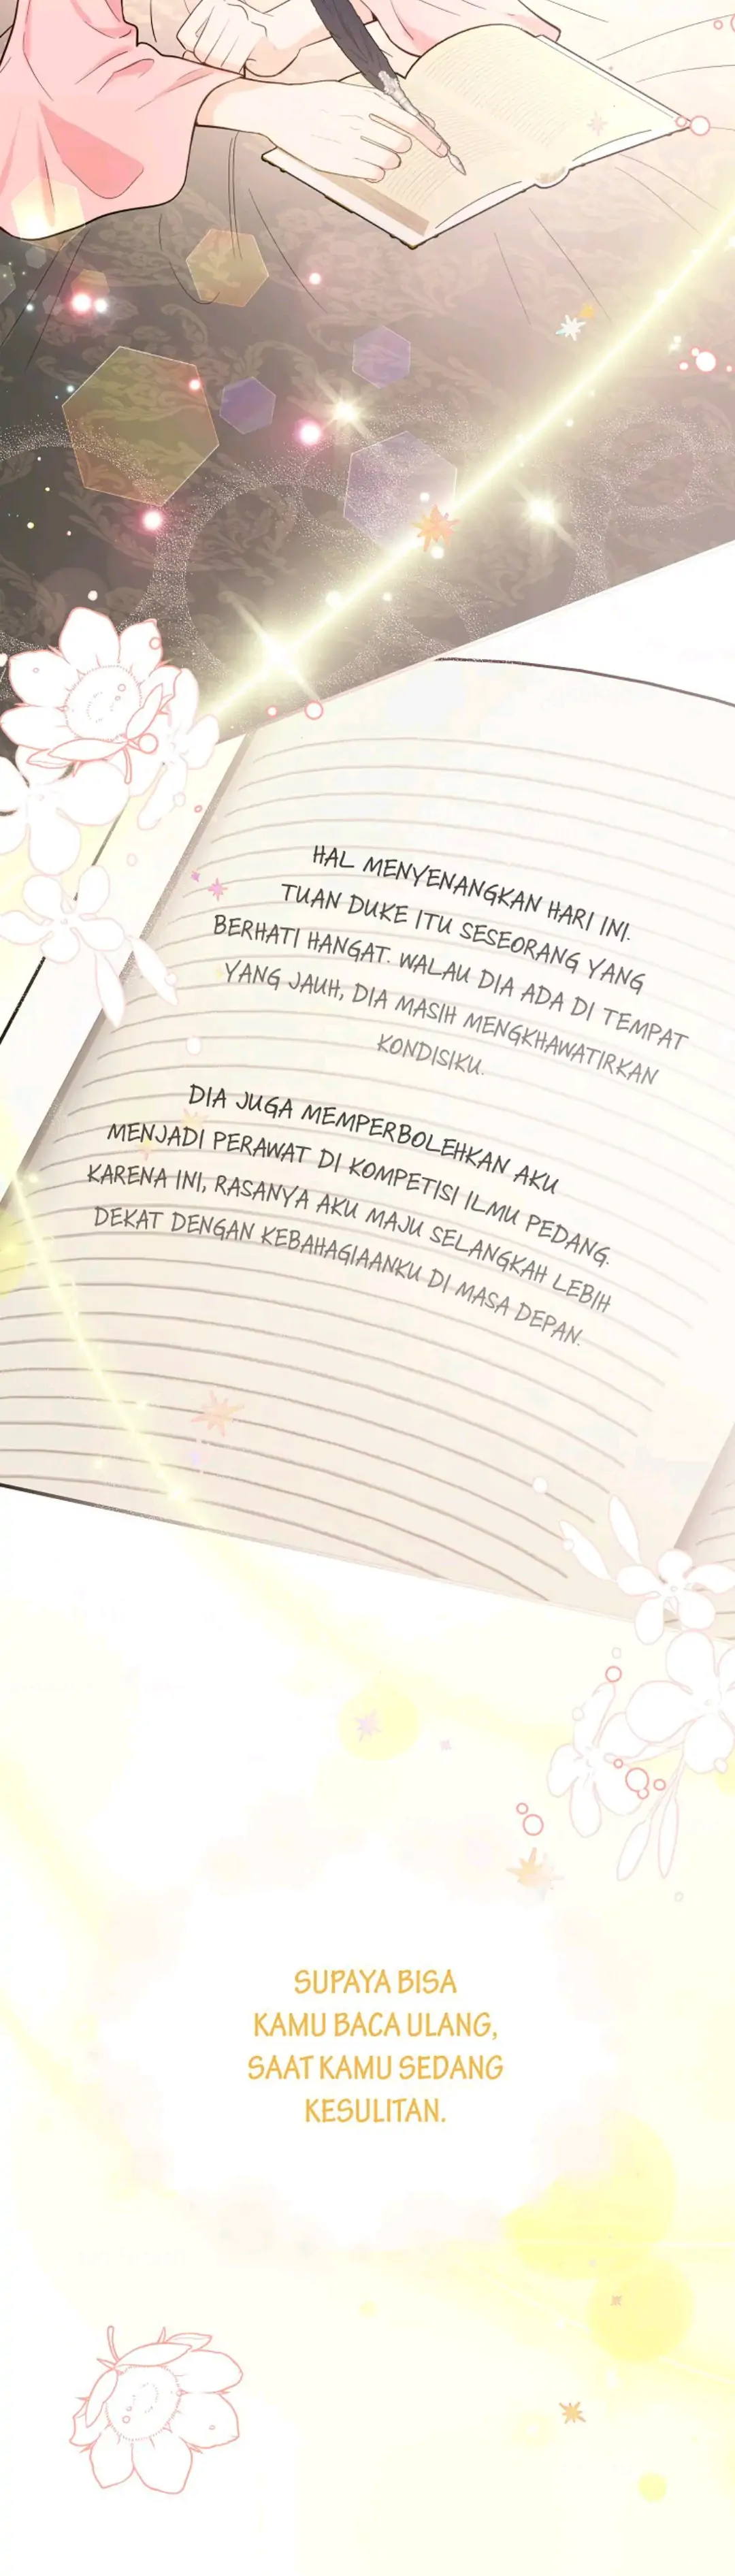 HAL MENYENANGKAN HARI INI.
TUAN DUKE ITU SESEORANG YANG
BERHATI HANGAT. WALAU DIA ADA DI TEMPAT
YANG JAUH, DIA MASIH MENGKHAWATIRKAN
KONDISIKU.
DIA JUGA MEMPERBOLEHKAN AKU
MENJADI PERAWAT DI KOMPETISI ILMU PEDANG.
KARENA INI, RASANYA AKU MAJU SELANGKAH LEBIH
DEKAT DENGAN KEBAHAGIAANKU DI MASA DEPAN.
SUPAYA BISA
KAMU BACA ULANG,
SAAT KAMU SEDANG
KESULITAN.